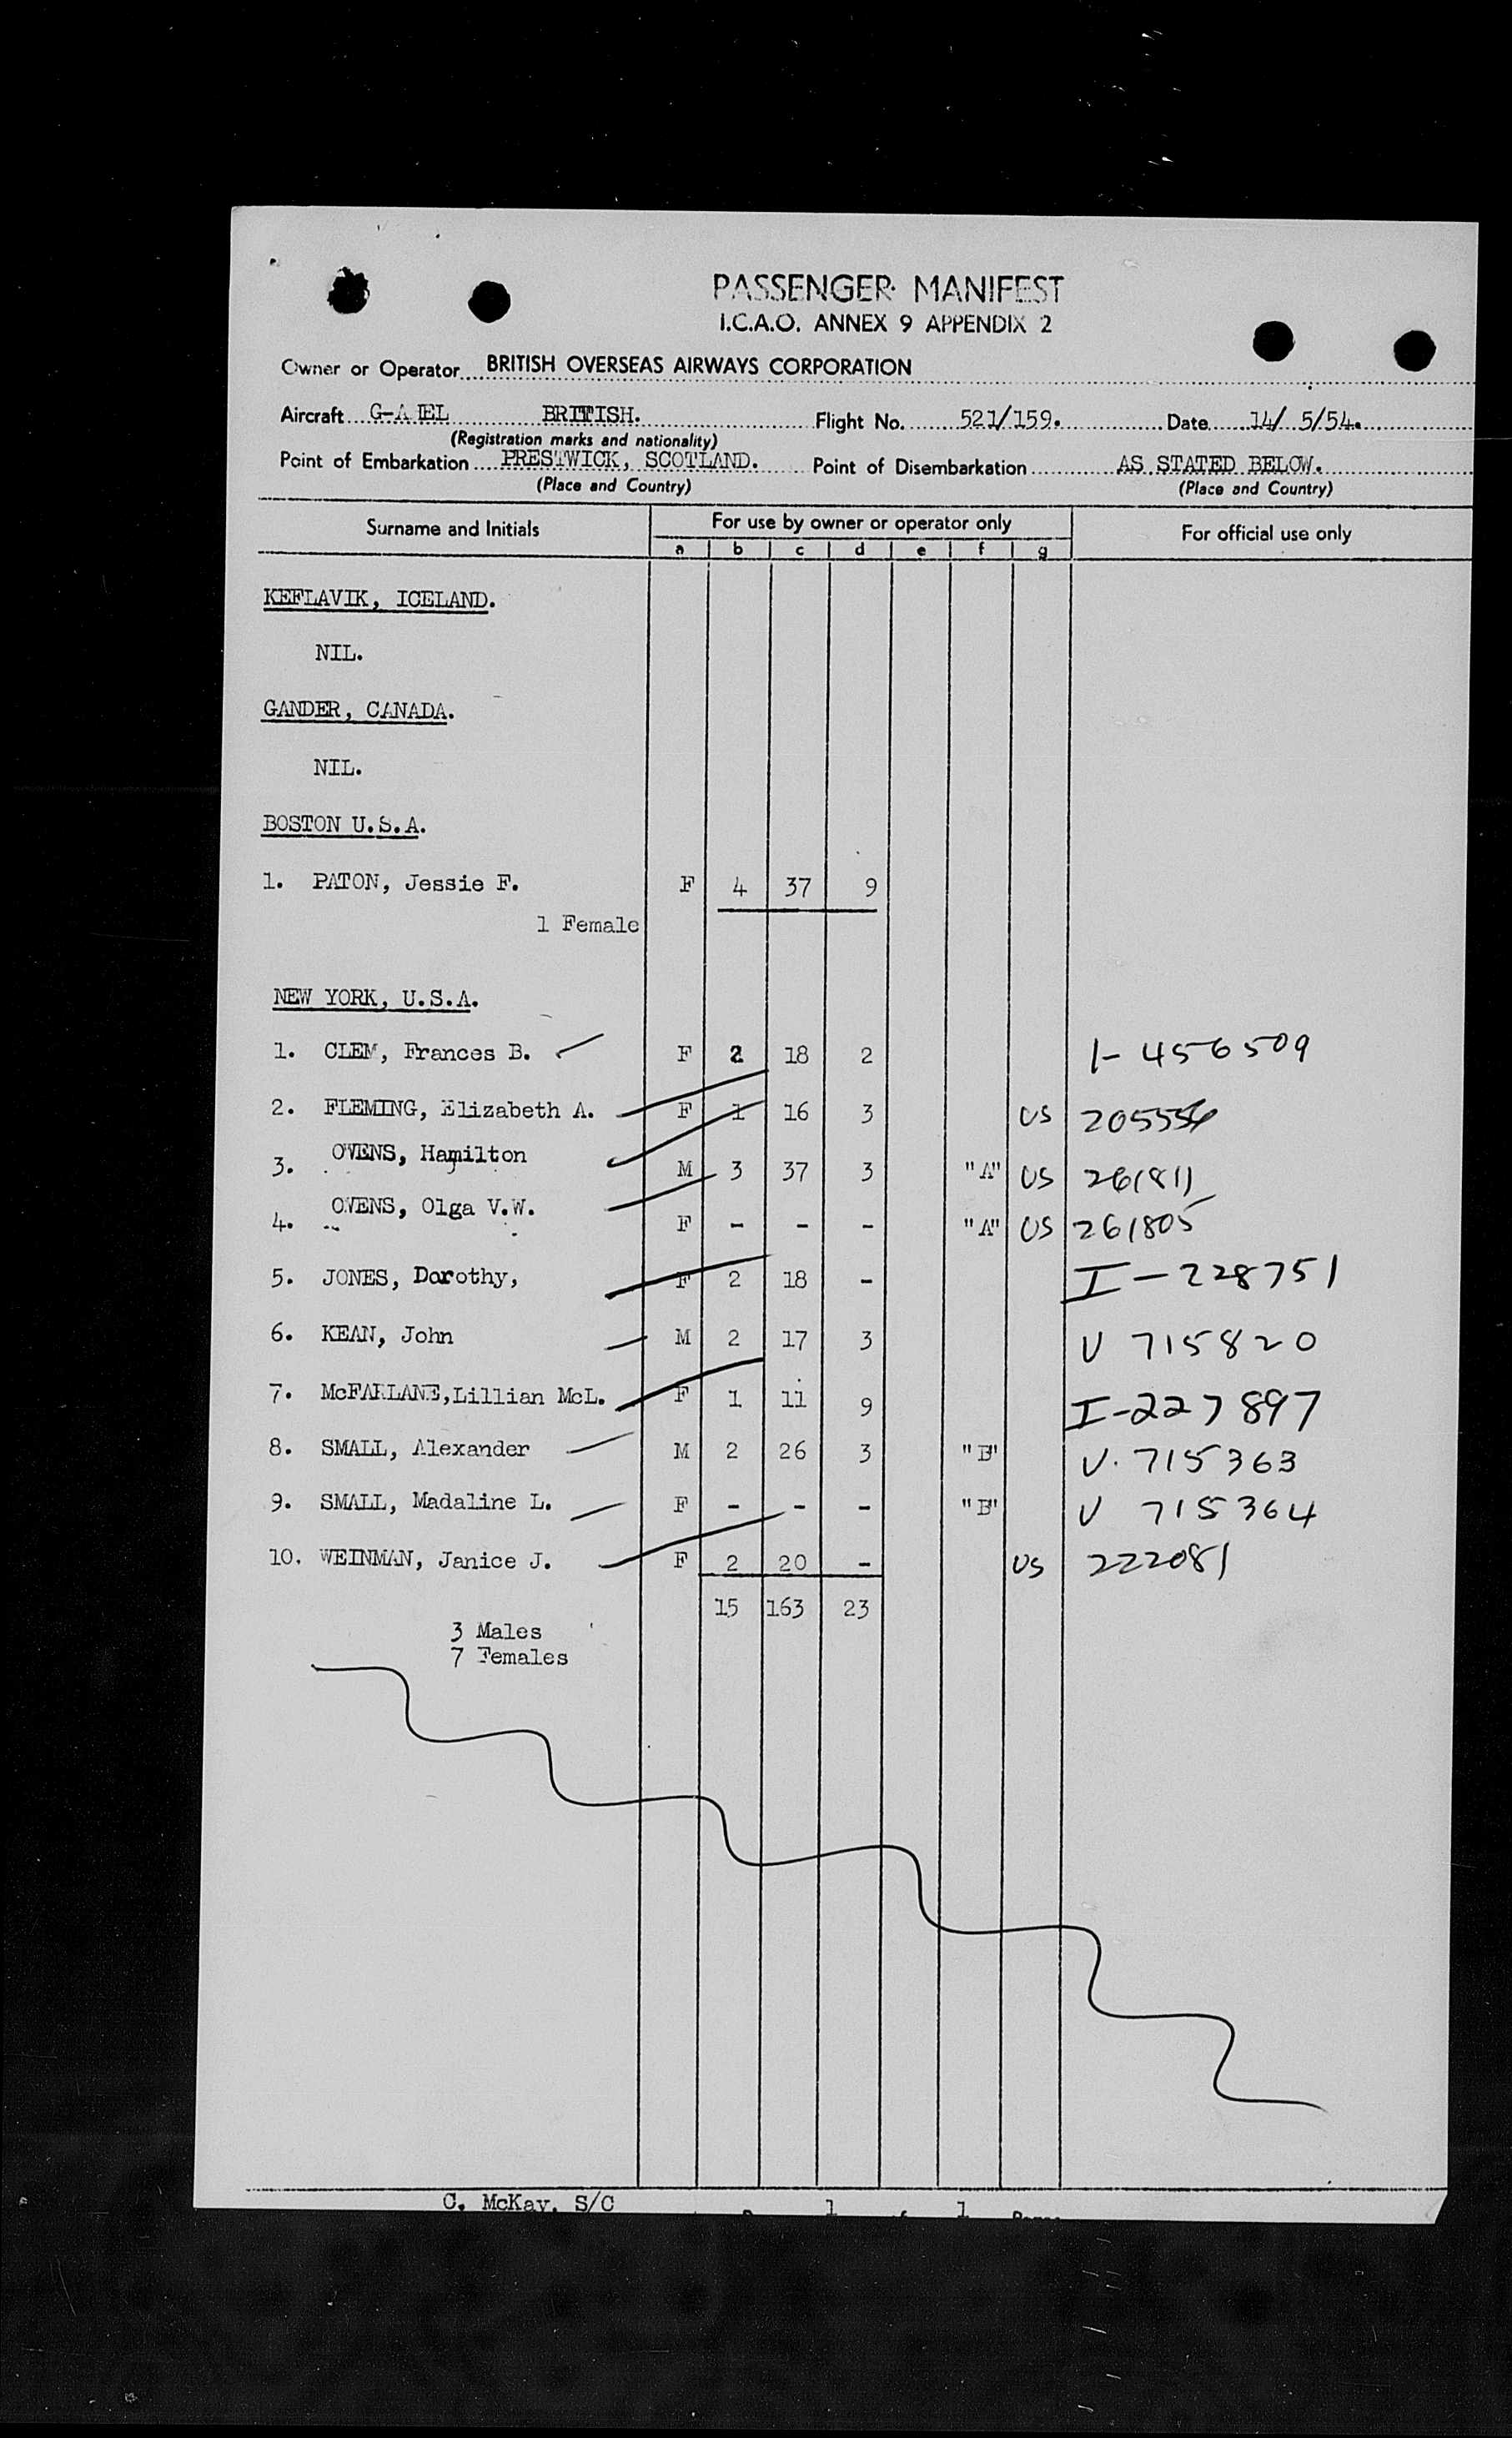 PASSENGER MANIFEST
I.C.A.O. ANNEX 9 APPENDIX 2
Owner or Operator BRITISH OVERSEAS AIRWAYS CORPORATION
Aircraft BRITISH. Flight No. 521/159. Date 14/ 5/54.
(Registration marks and nationality)
Point of Embarkation PRESTWICK, SCOTLAND. Point of Disembarkation AS STATED BELOW.
(Place and Country) (Place and Country)
Surname and Initials For use by owner or operator only For official use only
a b c d e f g
KEFLAVIK, ICELAND.
NIL.
GANDER, CANADA.
NIL.
BOSTON U.S.A.
1. PATON, Jessie F. F 4 37 9
1 Female
NEW YORK, U.S.A.
1. CLEM, Frances B. F 2 18 2 1-456509
2. FLEMING, Elizabeth A. F 1 16 3 US
3. OWENS, Hamilton M 3 37 3 "A" US 261811
4. OWENS, Olga V.W. F - - - "A" US 261805
5. JONES, Dorothy, F 2 18 - I-228751
6. KEAN, John M 2 17 3 V 715820
7. McFARLANE, Lillian McL. F 1 11 9 I-227897
8. SMALL, Alexander M 2 26 3 "B" V. 715363
9. SMALL, Madaline L. F - - - "B" V 715364
10. WEINMAN, Janice J. F 2 20 - US 222081
15 163 23
3 Males
7 Females
C. McKay, S/C 1 1